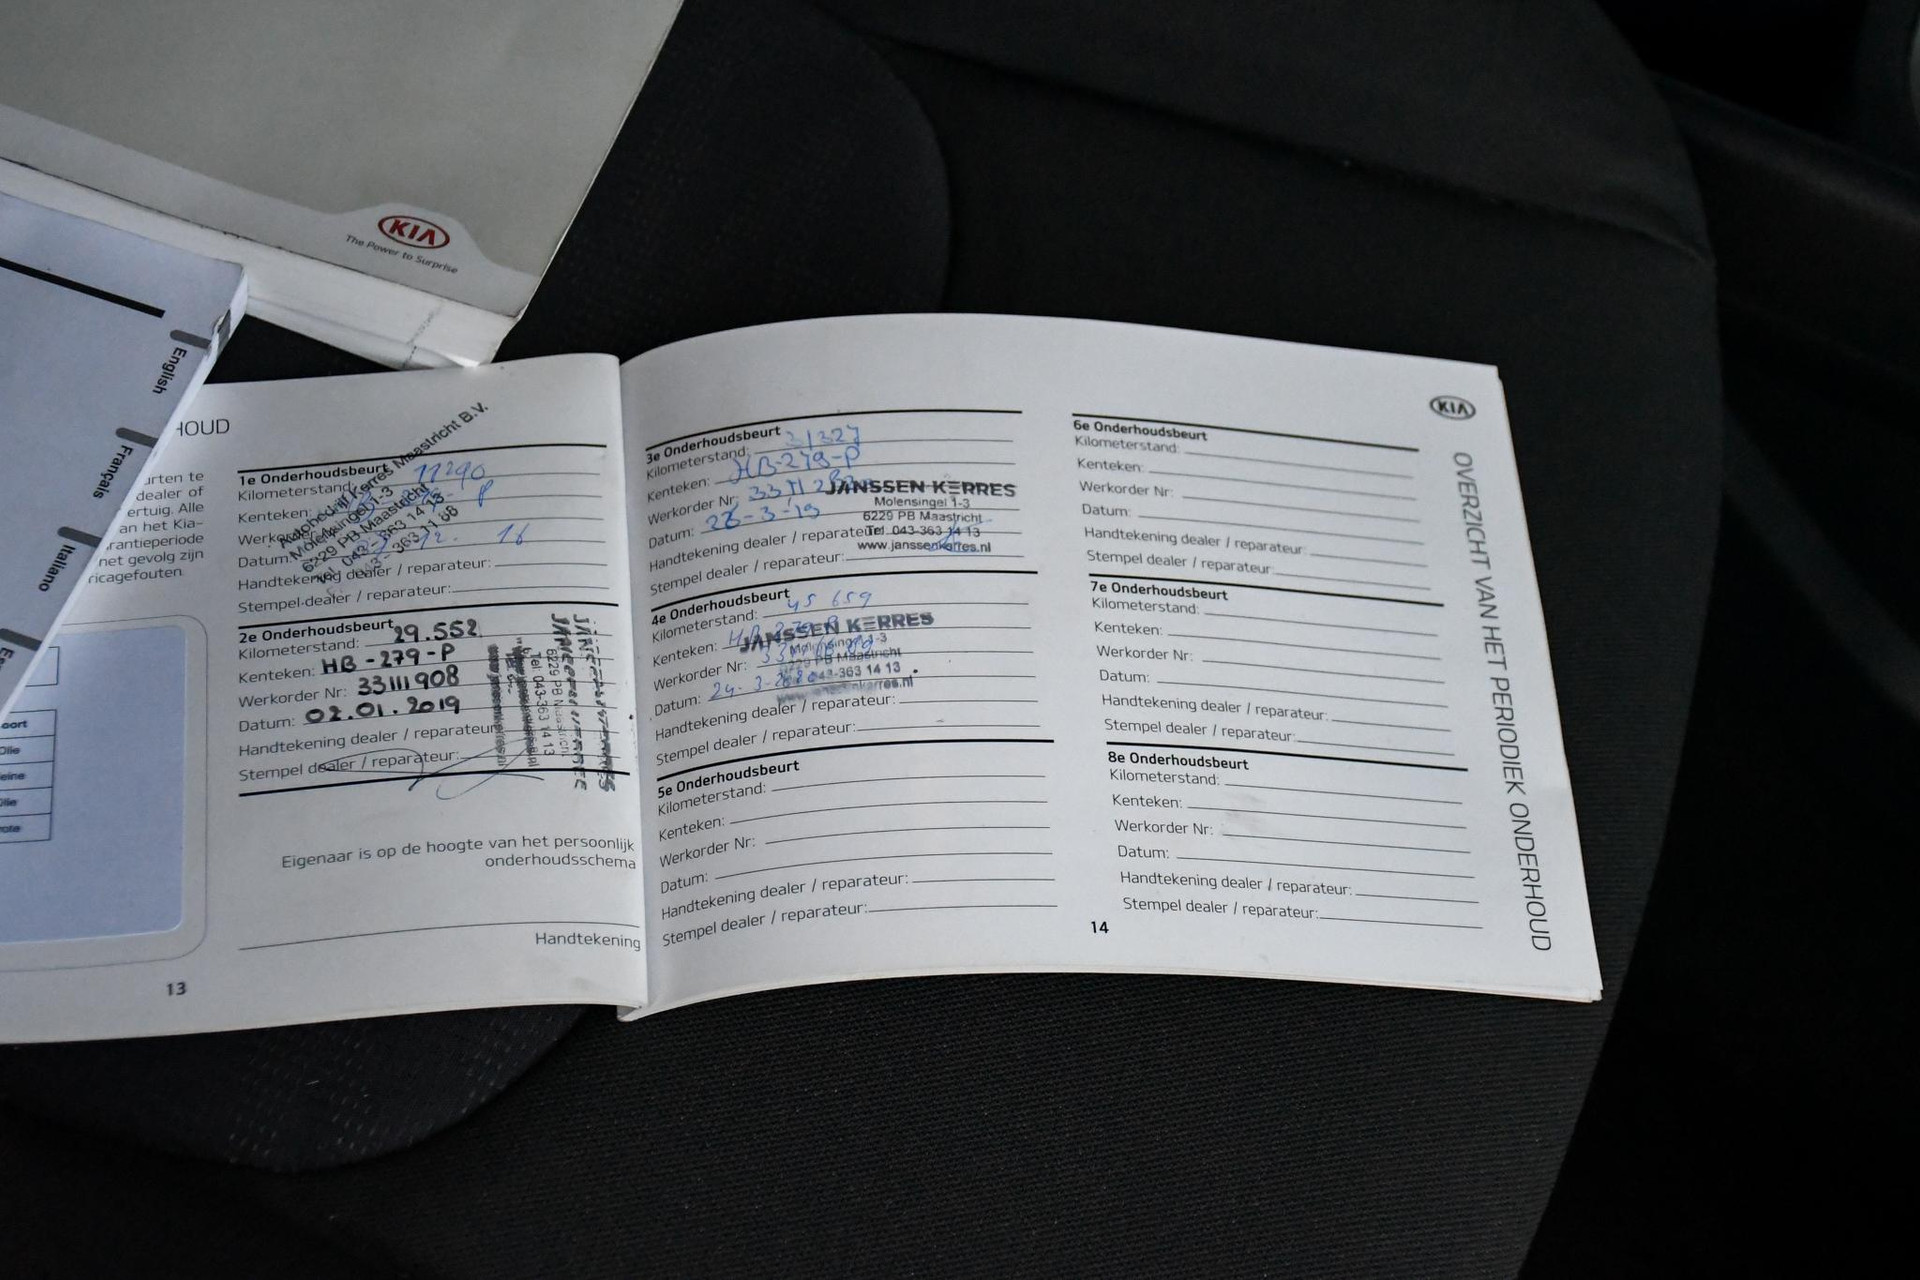 KIA
The Power to Surprise
English
Français
Italiano
HOUD
arten te
dealer of
ertuig. Alle
an het Kia-
rantieperiode
net gevolg zijn
ricagefouten.
oort
Olie
eine
Olie
rote
1e Onderhoudsbeurt
Kilometerstand: 11290
Kenteken: P
Werkorder
Datum: 12. 16
Handtekening dealer / reparateur:
Stempel dealer / reparateur:
Autobedrijf Kerres Maastricht B.V.
Molensingel 1-3
6229 PB Maastricht
Tel. 043-363 14 13
2e Onderhoudsbeurt
Kilometerstand: 29.552
Kenteken: HB-279-P
Werkorder Nr: 33111908
Datum: 02.01.2019
Handtekening dealer / reparateur:
Stempel dealer / reparateur:
6229 PB Maastricht
Tel: 043-363 14 13
Eigenaar is op de hoogte van het persoonlijk
onderhoudsschema
Handtekening
13
3e Onderhoudsbeurt
Kilometerstand: 31327
Kenteken: HB-279-P
Werkorder Nr:
Datum: 26-3-19
Handtekening dealer / reparateur:
Stempel dealer / reparateur:
JANSSEN KERRES
Molensingel 1-3
6229 PB Maastricht
Tel: 043-363 14 13
www.janssenkerres.nl
4e Onderhoudsbeurt
Kilometerstand: 45 659
Kenteken:
Werkorder Nr:
Datum: 24-3-
Handtekening dealer / reparateur:
Stempel dealer / reparateur:
JANSSEN KERRES
Molensingel 1-3
6229 PB Maastricht
043-363 14 13
www.janssenkerres.nl
5e Onderhoudsbeurt
Kilometerstand:
Kenteken:
Werkorder Nr:
Datum:
Handtekening dealer / reparateur:
Stempel dealer / reparateur:
6e Onderhoudsbeurt
Kilometerstand:
Kenteken:
Werkorder Nr:
Datum:
Handtekening dealer / reparateur:
Stempel dealer / reparateur:
7e Onderhoudsbeurt
Kilometerstand:
Kenteken:
Werkorder Nr:
Datum:
Handtekening dealer / reparateur:
Stempel dealer / reparateur:
8e Onderhoudsbeurt
Kilometerstand:
Kenteken:
Werkorder Nr:
Datum:
Handtekening dealer / reparateur:
Stempel dealer / reparateur:
14
KIA
OVERZICHT VAN HET PERIODIEK ONDERHOUD